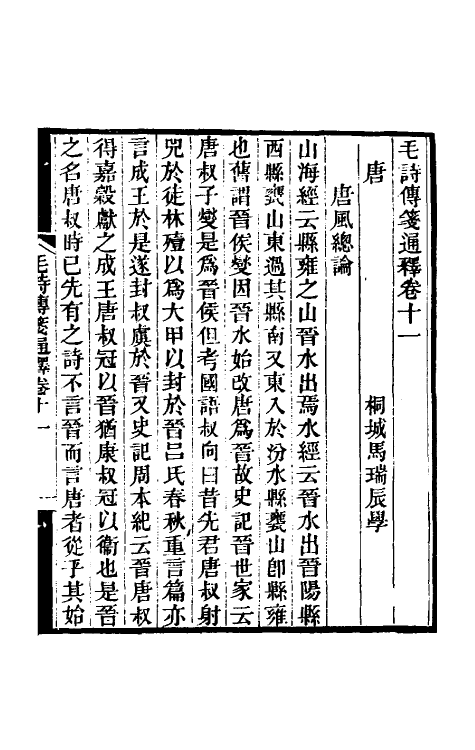 毛詩傳箋通釋卷十一
唐 桐城馬瑞辰學
唐風總論
山海經云縣雍之山晉水出焉水經云晉水出晉陽縣
西縣甕山東過其縣南又東入於汾水縣甕山卽縣雍
也舊謂晉侯燮因晉水始改唐爲晉故史記晉世家云
唐叔子燮是爲晉侯但考國語叔向曰昔先君唐叔射
兕於徒林殪以爲大甲以封於晉呂氏春秋重言篇亦
言成王於是遂封叔虞於晉又史記周本紀云晉唐叔
得嘉穀獻之成王唐叔冠以晉猶康叔冠以衞也是晉
之名唐叔時已先有之詩不言晉而言唐者從乎其始
毛詩傳箋通釋卷十一